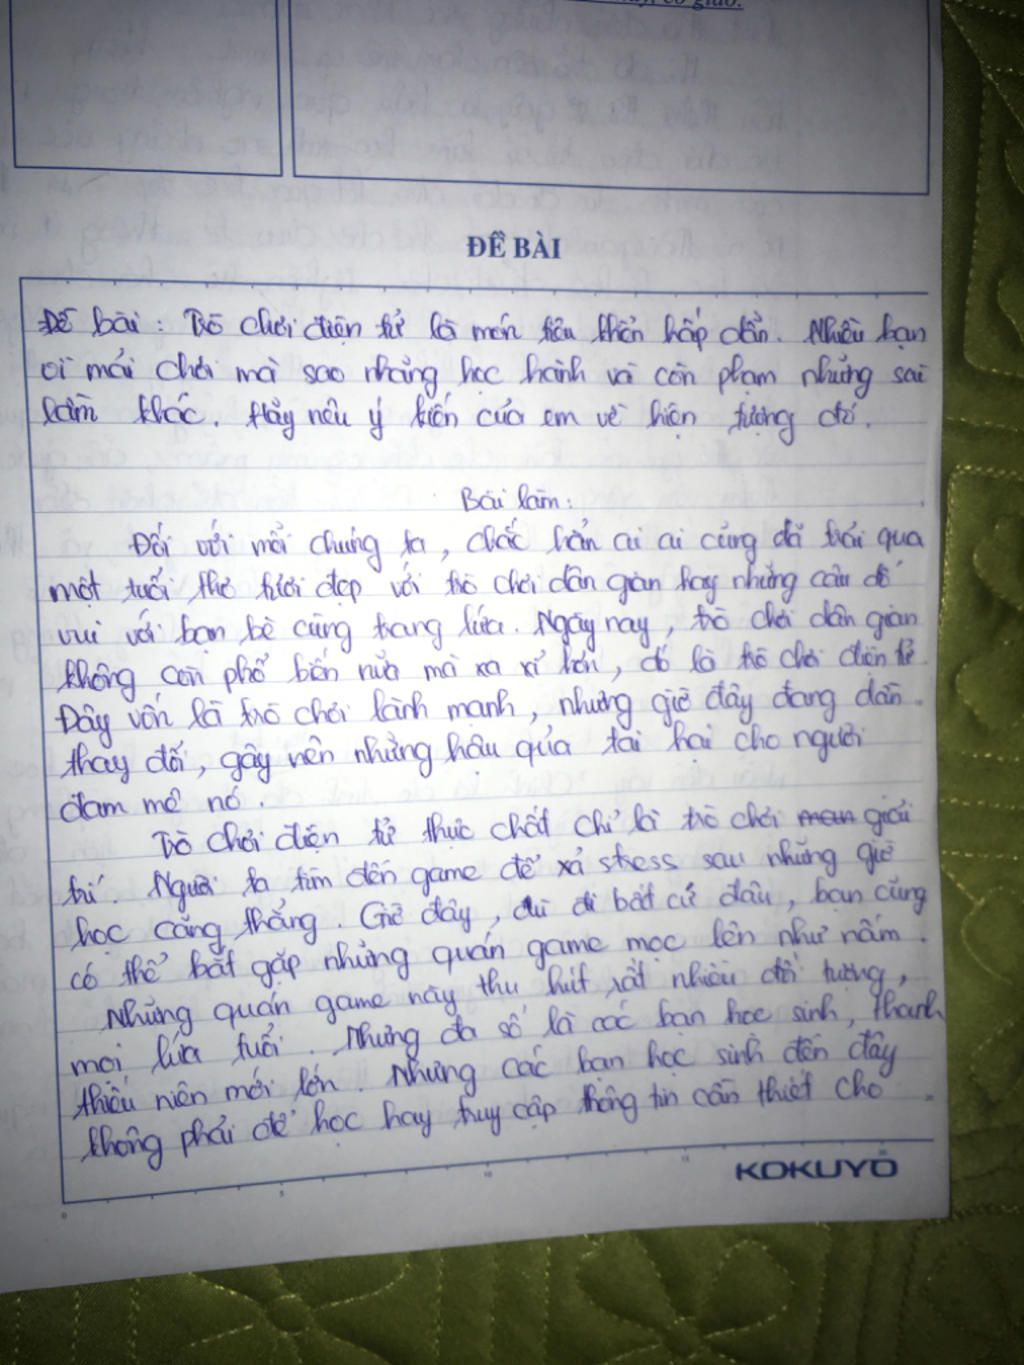 cô giáo.
ĐỀ BÀI
Đề bài : Trò chơi điện tử là món tiêu khiển hấp dẫn. Nhiều bạn
vì mải chơi mà sao nhãng học hành và còn phạm những sai
lầm khác. Hãy nêu ý kiến của em về hiện tượng đó.
Bài làm:
Đối với mỗi chúng ta, chắc hẳn ai ai cũng đã trải qua
một tuổi thơ tươi đẹp với trò chơi dân gian hay những câu đố
vui với bạn bè cùng trang lứa. Ngày nay, trò chơi dân gian
không còn phổ biến nữa mà xa xỉ hơn, đó là trò chơi điện tử.
Đây vốn là trò chơi lành mạnh, nhưng giờ đây đang dần
thay đổi, gây nên những hậu quả tai hại cho người
đam mê nó.
Trò chơi điện tử thực chất chỉ là trò chơi giải
trí. Người ta tìm đến game để xả stress sau những giờ
học căng thẳng. Giờ đây, dù đi bất cứ đâu, bạn cũng
có thể bắt gặp những quán game mọc lên như nấm.
Những quán game này thu hút rất nhiều đối tượng,
mọi lứa tuổi. Nhưng đa số là các bạn học sinh, thanh
thiếu niên mới lớn. Nhưng các bạn học sinh đến đây
không phải để học hay truy cập thông tin cần thiết cho
KOKUYO